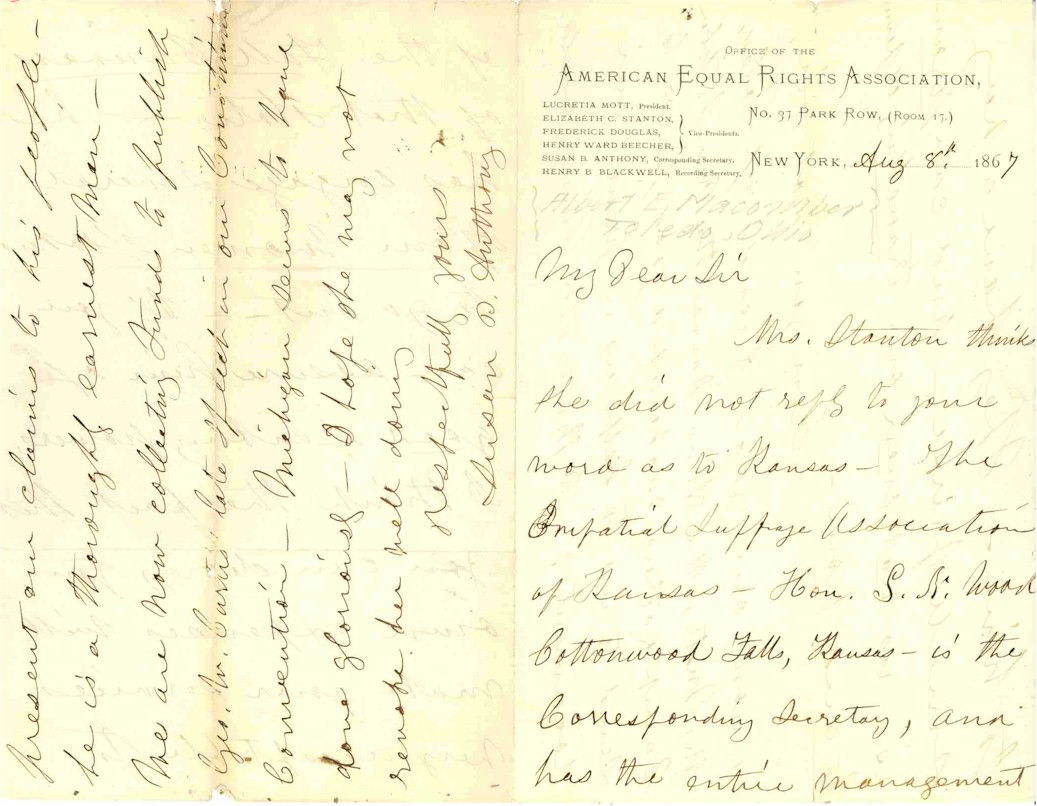 OFFICE OF THE
AMERICAN EQUAL RIGHTS ASSOCIATION,
No. 37 PARK ROW, (ROOM 17.)
LUCRETIA MOTT, President.
ELIZABETH C. STANTON,
FREDERICK DOUGLAS,
HENRY WARD BEECHER,
Vice-Presidents.
SUSAN B. ANTHONY, Corresponding Secretary.
HENRY B BLACKWELL, Recording Secretary.
NEW YORK, Aug 8th 1867
Albert E. Macomber
Toledo, Ohio
My Dear Sir
Mrs. Stanton thinks
she did not reply to your
word as to Kansas – The
Impatial Suffrage Association
of Kansas – Hon. S. N. Wood
Cottonwood Falls, Kansas – is the
Corresponding Secretary, and
has the entire management
present our claims to his people –
he is a thoroughly earnest man –
We are now collecting funds to publish
Geo. W. Curtis' late speech in our Con
Convention – Michigan seems to have
done gloriously – I hope she may not
revoke her well doing
Respectfully yours
Susan B. Anthony